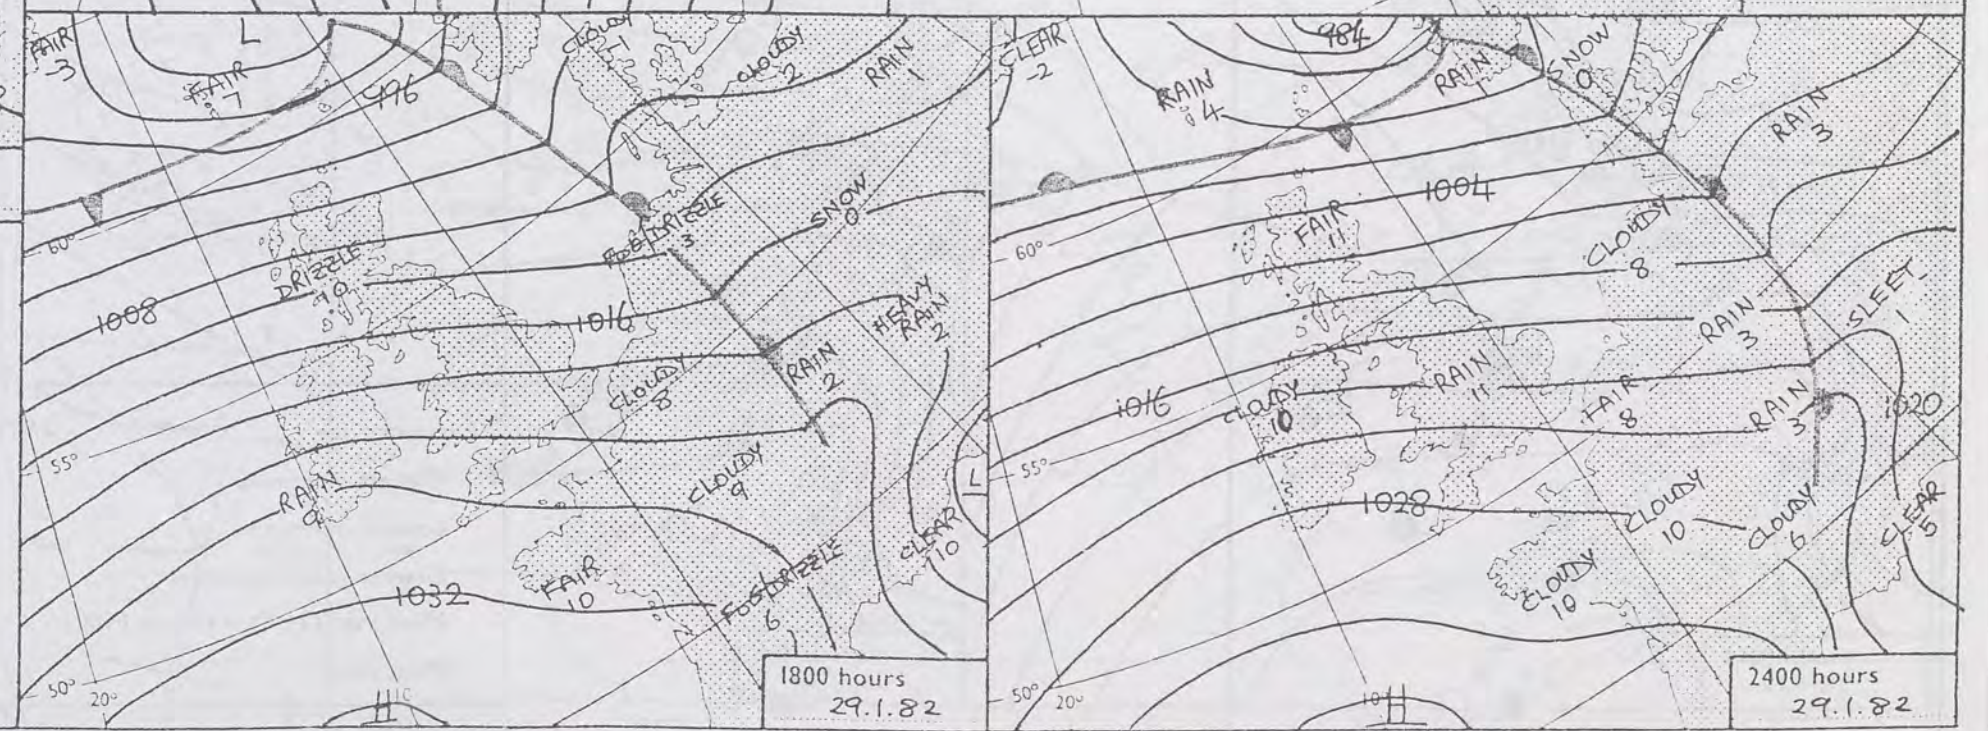 FAIR
3
L
FAIR
7
996
CLOUDY
-1
CLOUDY
2
RAIN
1
60°
DRIZZLE
10
FOG/DRIZZLE
3
SNOW
0
1008
1016
HEAVY
RAIN
2
RAIN
2
CLOUDY
8
55°
RAIN
9
CLOUDY
9
L
CLEAR
10
FAIR
10
FOG/DRIZZLE
6
1032
50°
20°
H
1800 hours
29.1.82
CLEAR
-2
984
RAIN
4
RAIN
1
SNOW
0
RAIN
3
1004
60°
FAIR
11
CLOUDY
8
RAIN
3
SLEET
1
1016
CLOUDY
10
RAIN
11
FAIR
8
RAIN
3
1020
55°
1028
CLOUDY
10
CLOUDY
6
CLEAR
5
CLOUDY
10
50°
20°
10
H
2400 hours
29.1.82